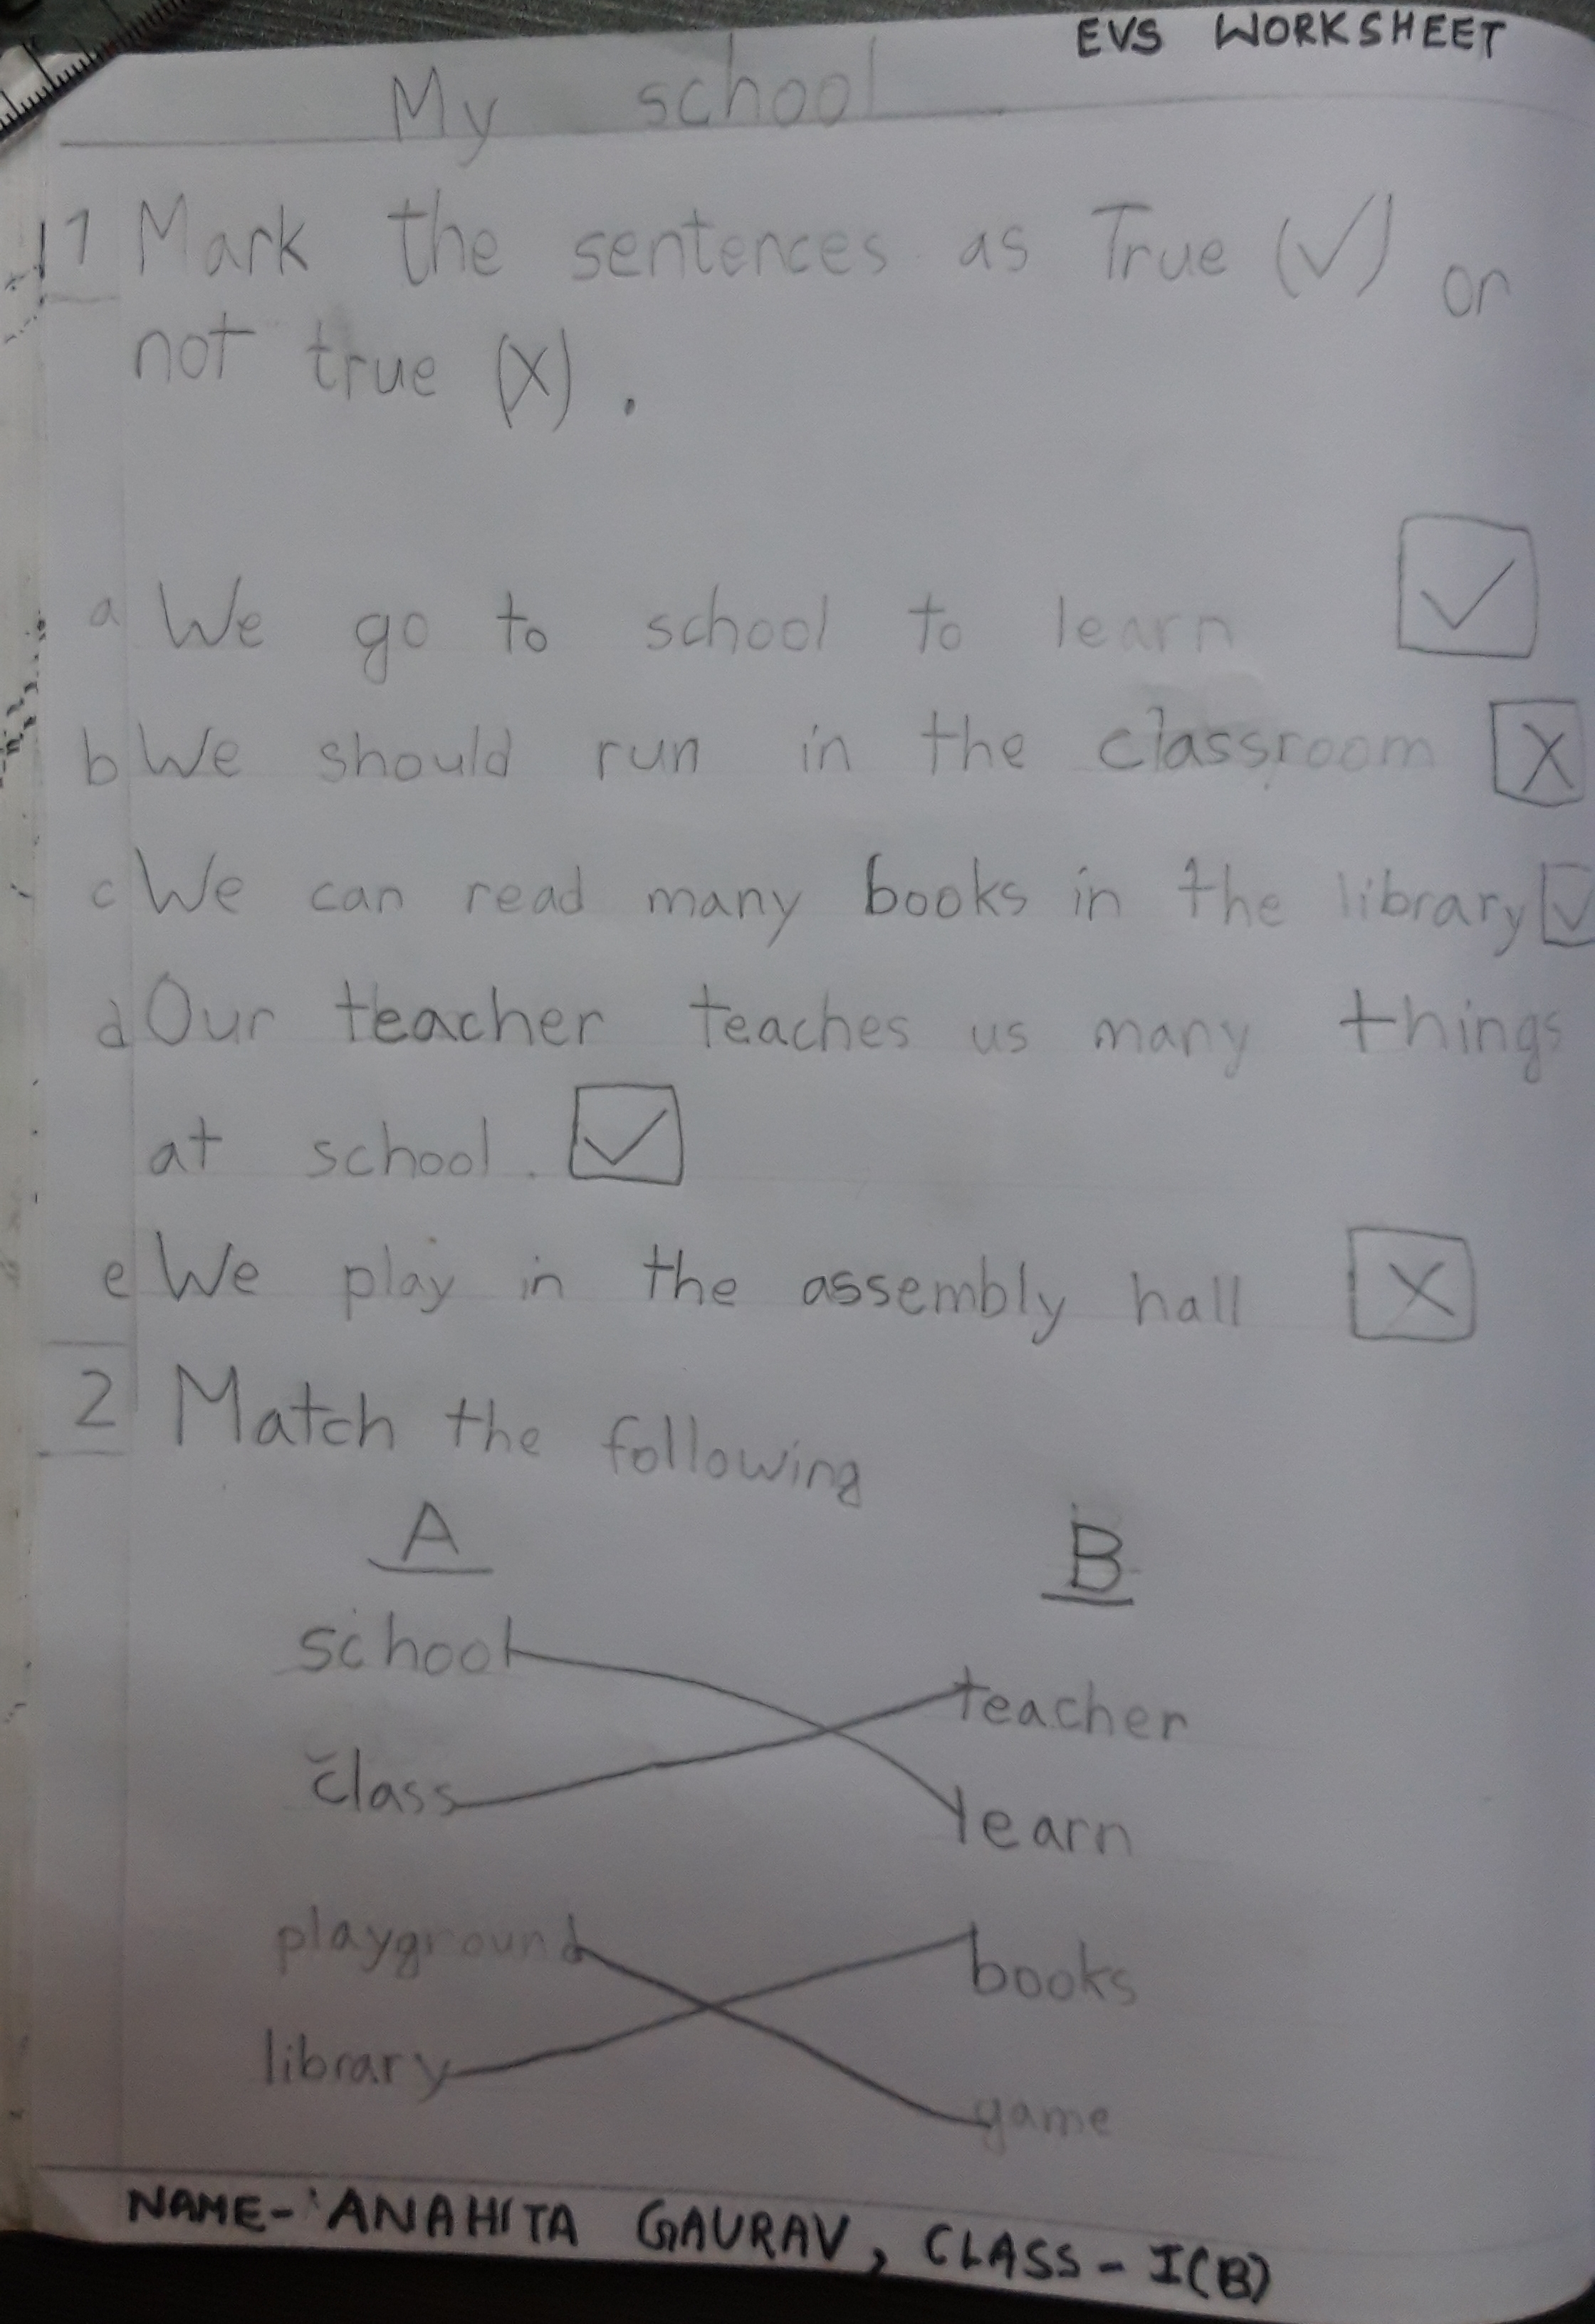 EVS WORKSHEET
My school
1 Mark the sentences as True (✓) or
not true (X).
a We go to school to learn ✓
b We should run in the classroom X
c We can read many books in the library ✓
d Our teacher teaches us many things
at school. ✓
e We play in the assembly hall X
2 Match the following
A B
school teacher
class learn
playground books
library game
NAME- ANAHITA GAURAV, CLASS - I(B)